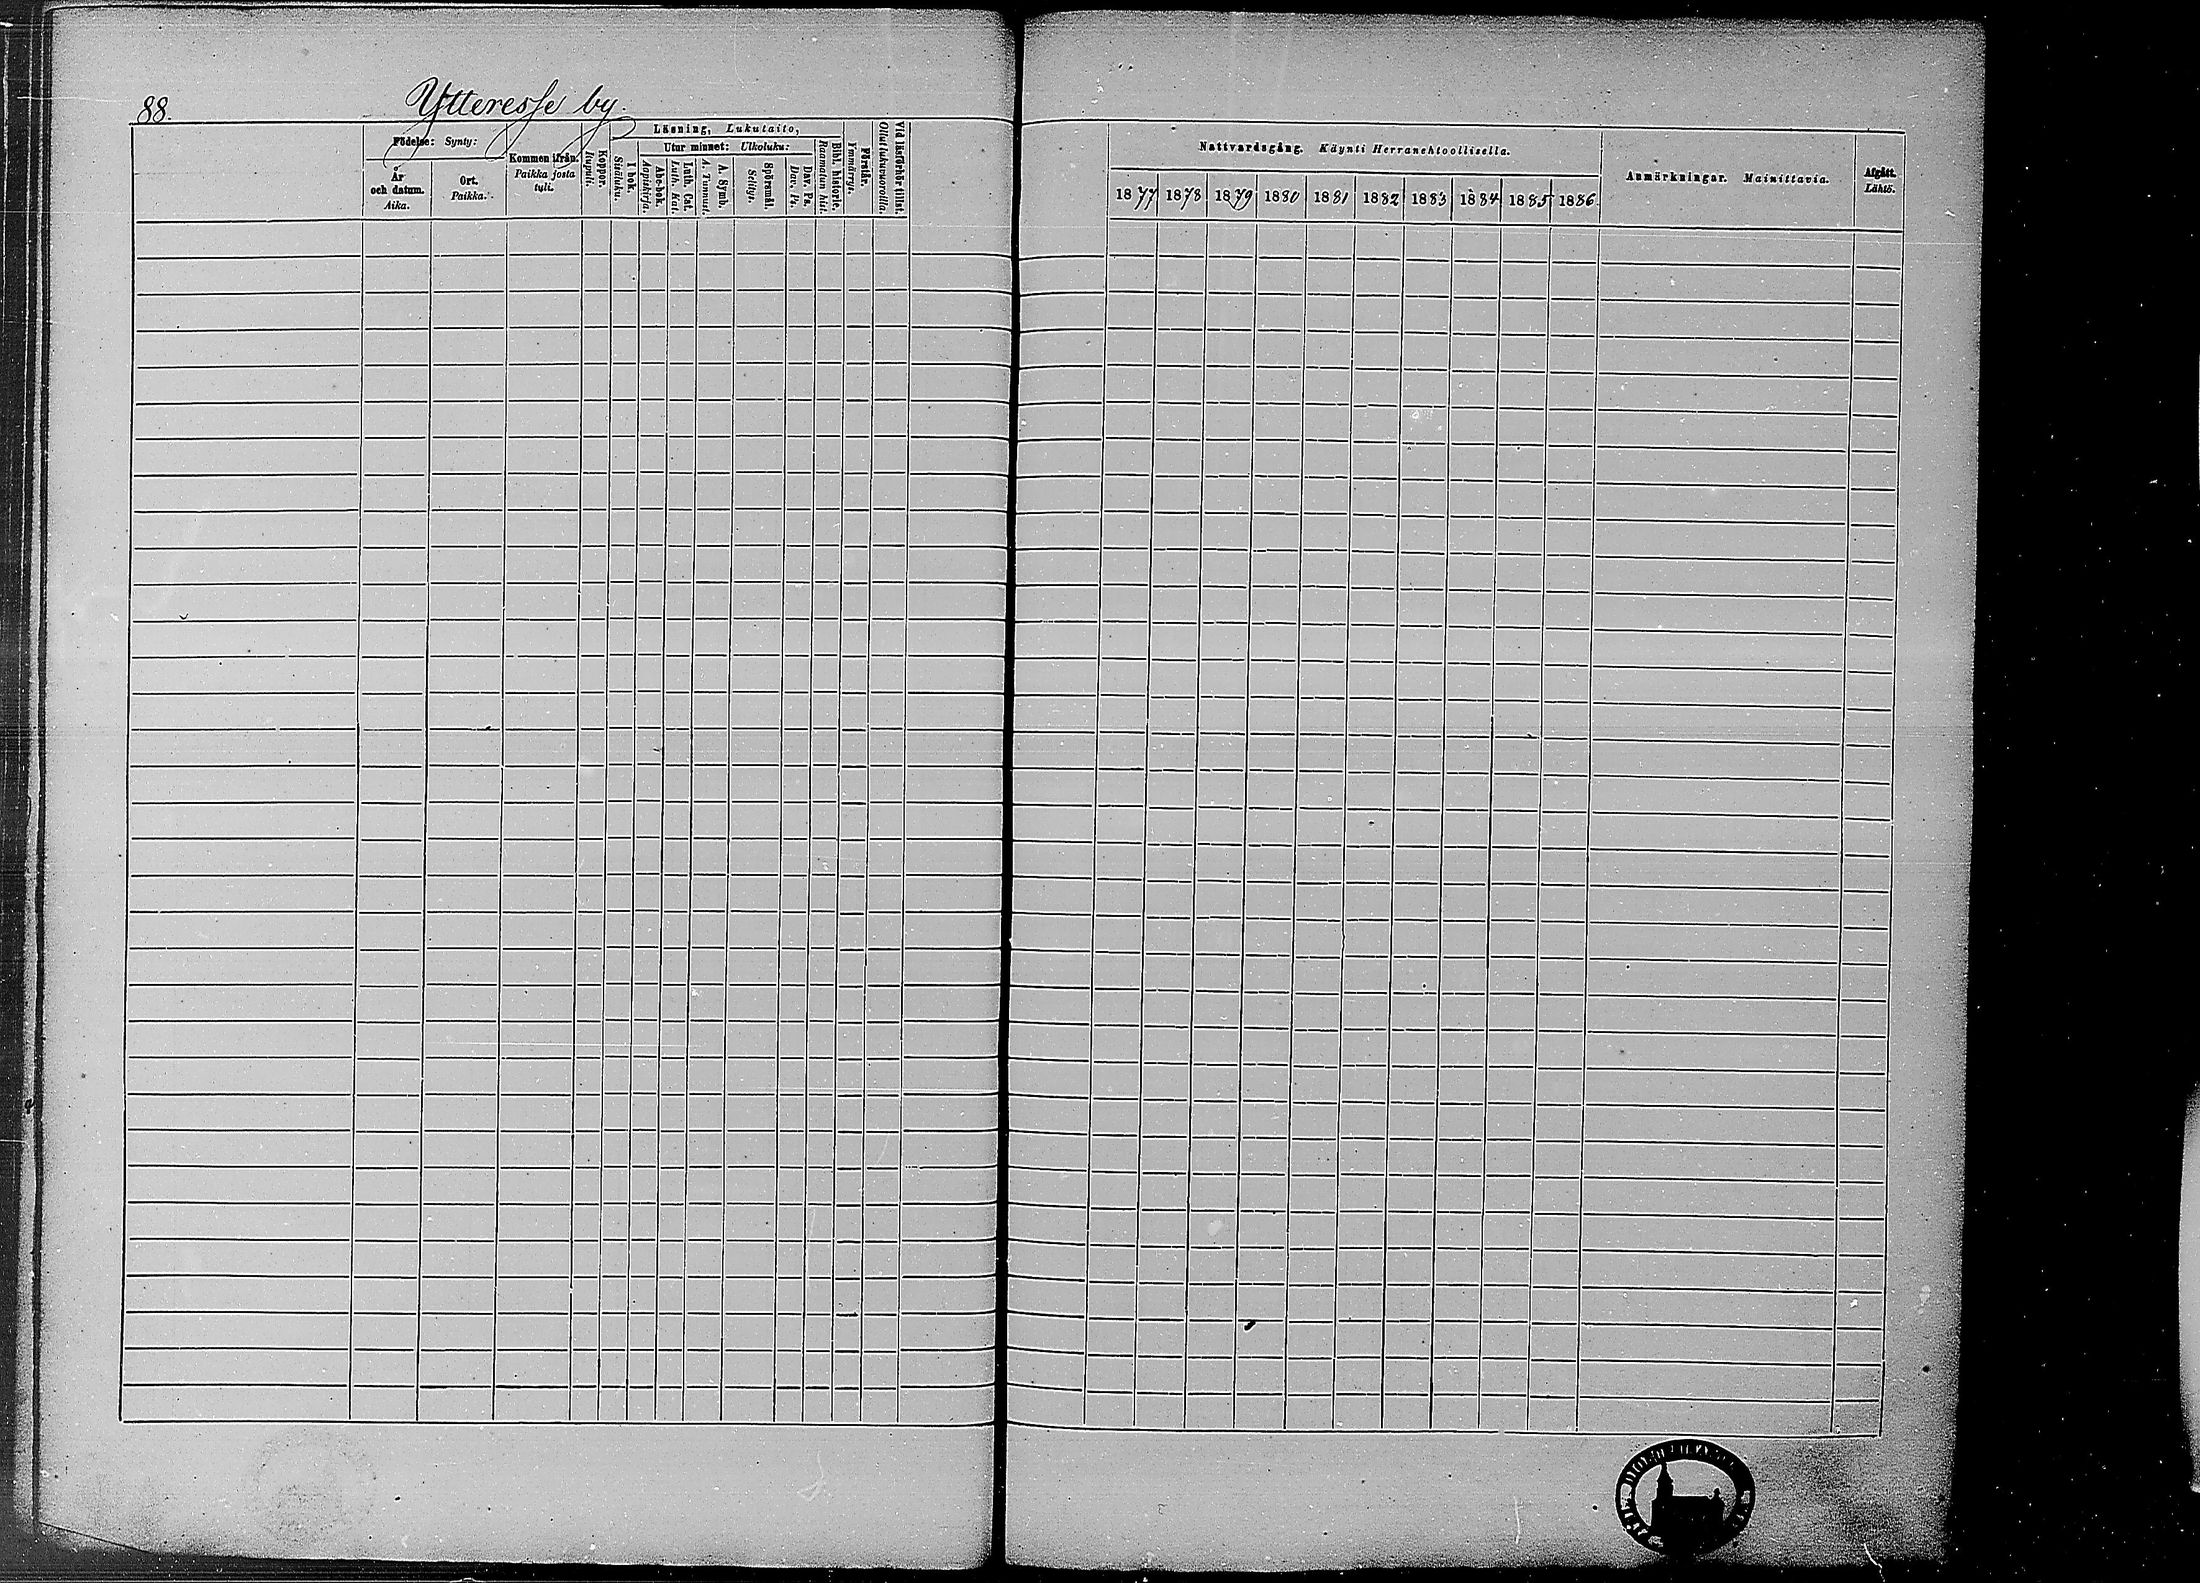 88.
Ytteresse by.
Födelse: Synty:
År
och datum.
Aika.
Ort.
Paikka.
Kommen ifrån.
Paikka josta
tuli.
Koppor.
Rupuli.
Läsning, Lukutaito,
I bok.
Sisäluku.
Utur minnet: Ulkoluku:
Abc-bok.
Aapiskirja.
Luth. Cat.
Luth. Kat.
A. Symb.
A. Tunnust.
Spörsmål.
Selitys.
Dav. Ps.
Dav. Ps.
Bibl. historie.
Raamatun hist.
Förstår.
Ymmärrys.
Vid läsförhör tillst.
Ollut lukuvuoroilla.
Nattvardsgång. Käynti Herranehtoollisella.
1877 1878 1879 1880 1881 1882 1883 1884 1885 1886
Anmärkningar. Mainittavia.
Afgått.
Lähtö.